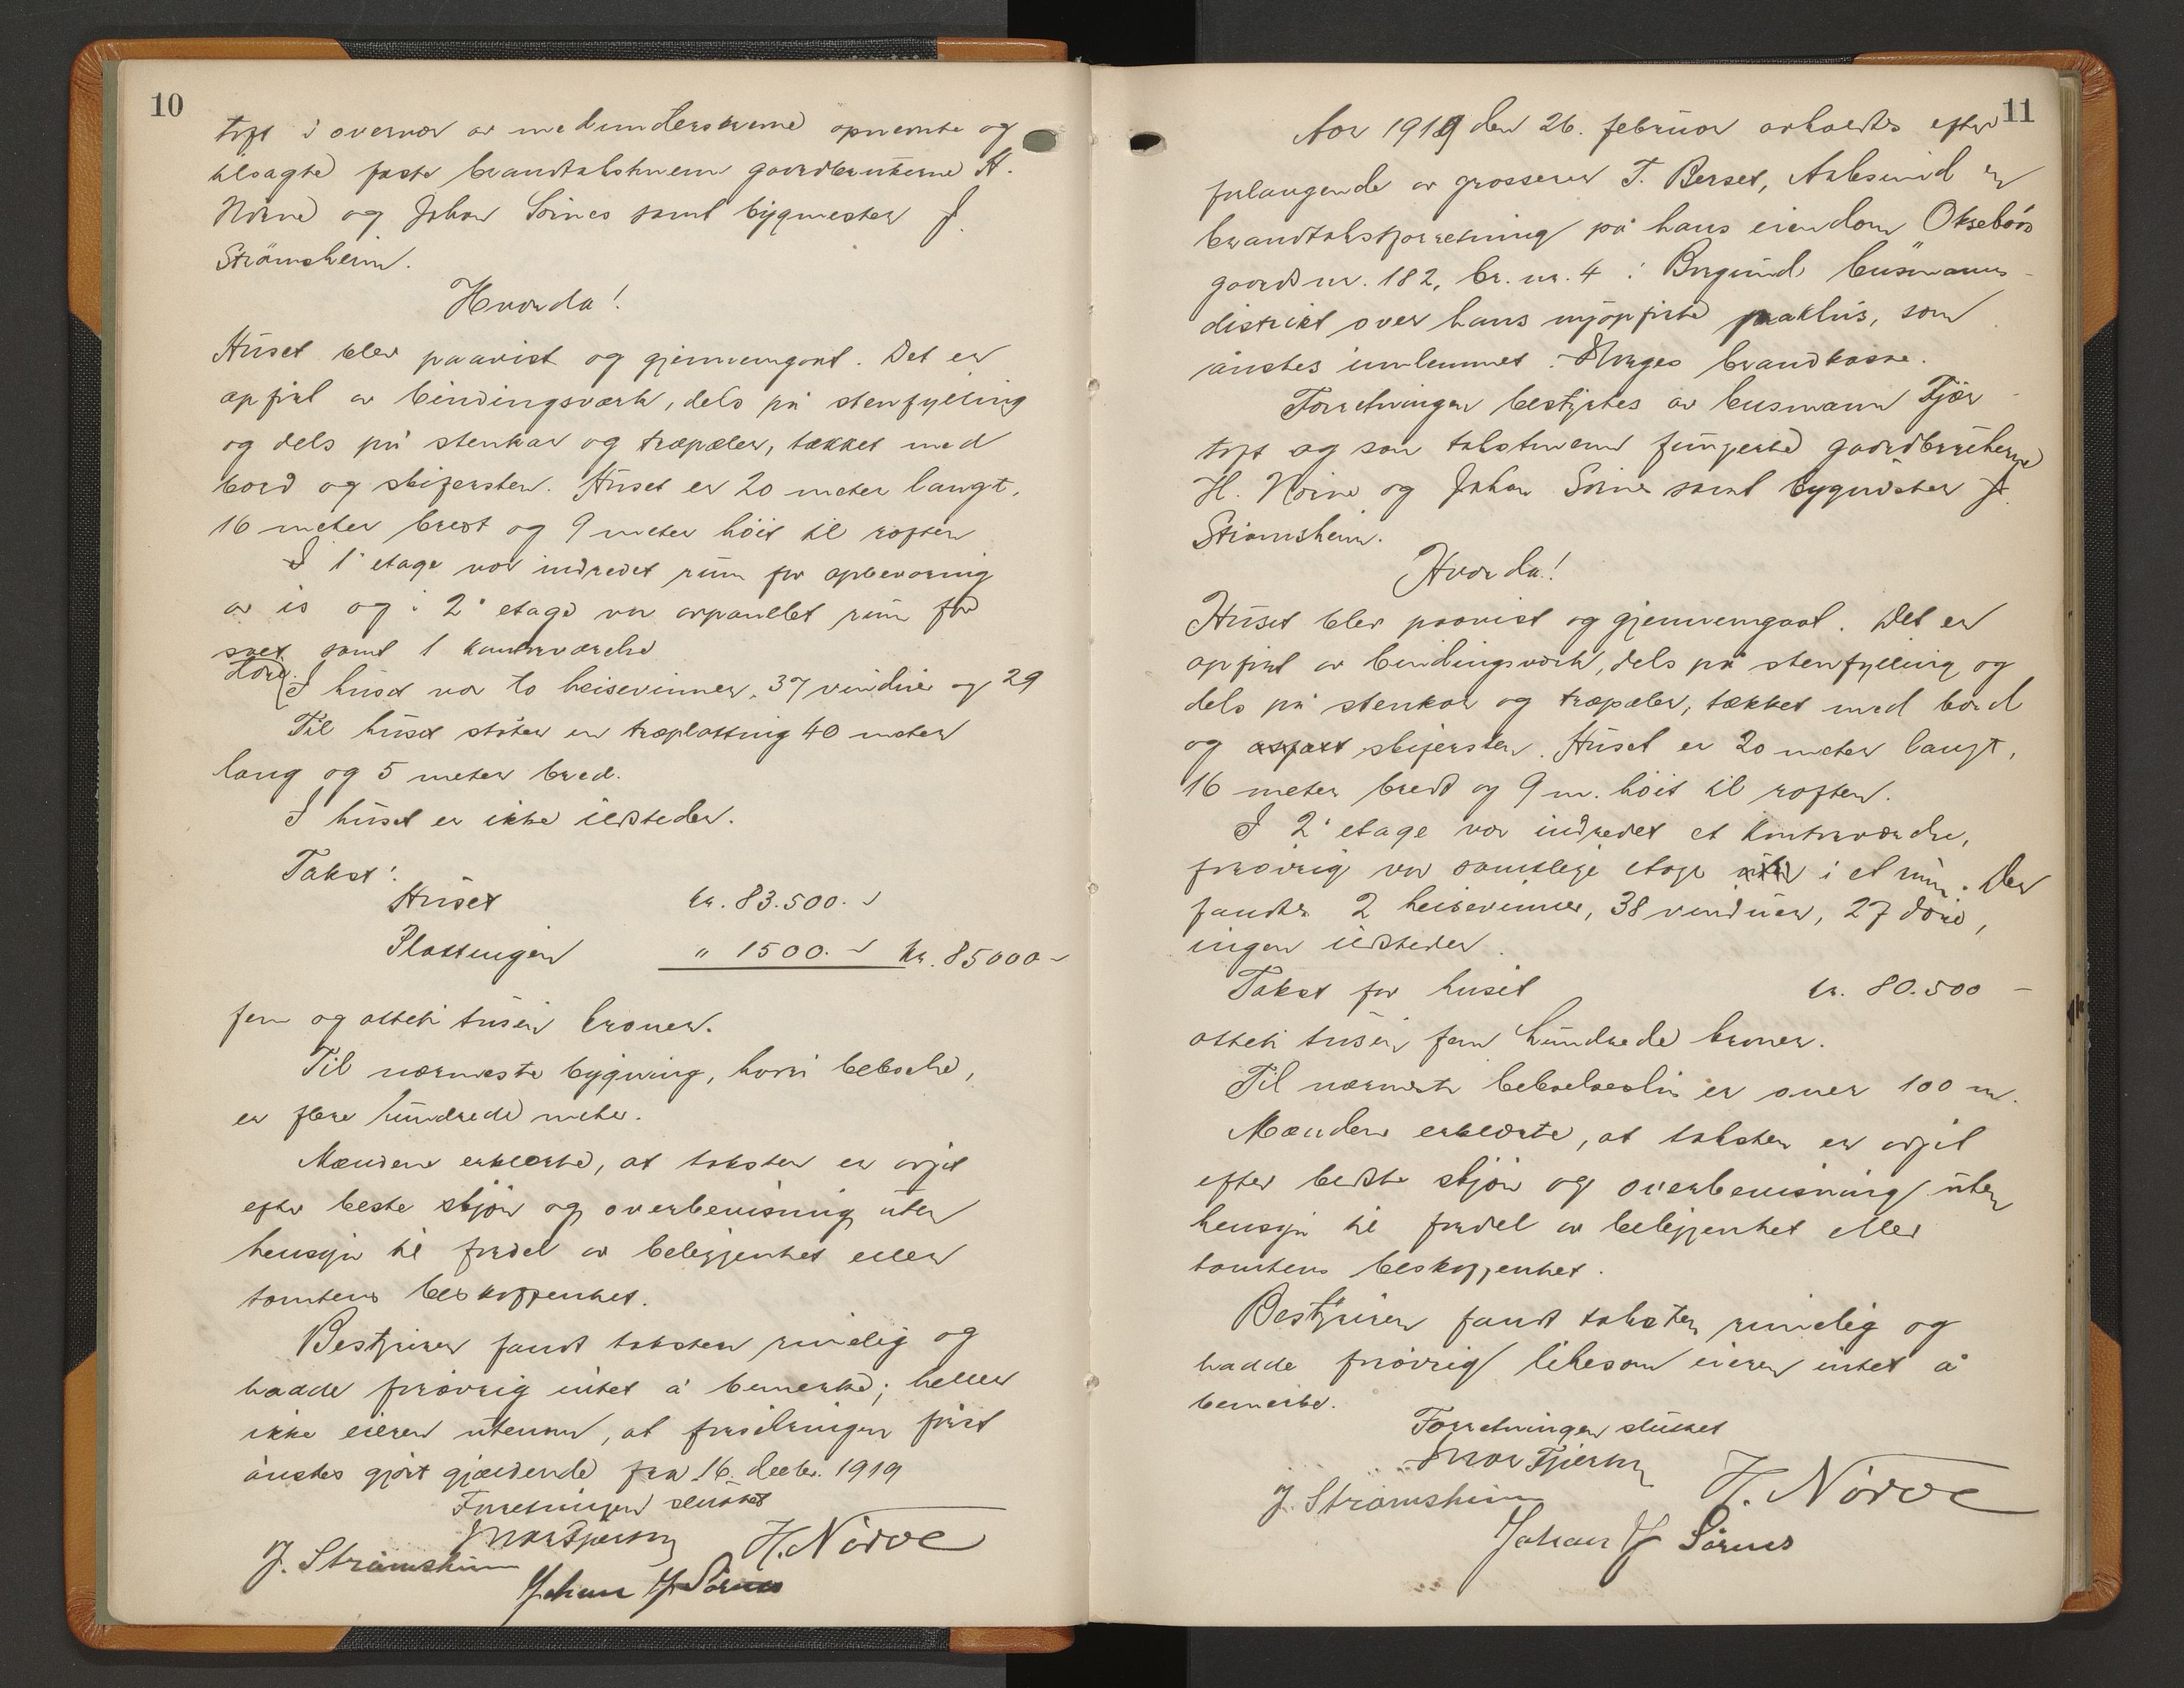 10
toft i overvær av medunderskrevne opnevnte og
tilsagte faste brandtakstmenn gaardbrukerne H.
Nörve og Johan Sörnes samt bygmester J.
Strömsheim.
Hvorda!
Huset blev paavist og gjennemgaat. Det er
opført av bindingsverk, dels på stenfylling
og dels på stenkar og træpæler, tækket med
bord og skifersten. Huset er 20 meter langt,
16 meter bredt og 9 meter höit til roften
I 1' etage var indredet rum for opbevaring
av is og i 2' etage var avpanelet rum for
salt samt 1 kontorværelse
döre. I huset var to heisevinner, 37 vinduer og 29
Til huset støter en træplatting 40 meter
lang og 5 meter bred.
I huset er ikke ildsteder.
Takst:
Huset kr. 83.500. -
Plattingen " 1500. - kr. 85000 -
fem og otteti tusin kroner.
Til nærmeste bygning, hvori beboelse,
er flere hundrede meter.
Mændene erklærte, at taksten er avgit
efter beste skjön og overbevisning uten
hensyn til fordel av beliggenhet eller
tomtens beskaffenhet.
Bestyreren fandt taksten rimelig og
hadde forøvrig intet å bemerke; heller
ikke eieren utenom, at forsikringen først
ønskes gjört gjældende fra 16. decbr. 1919
Forretningen sluttet
J. Strömsheim H. Nörve
Johan J. Sörnes
11
Aar 1919 den 26. februar avholdtes efter
forlangende av grosserer T. Berset, Aalesund en
brandtakstforretning på hans eiendom Oksebås
gaards nr. 182, br. nr. 4 i Borgund lensmanns-
distrikt over hans nyopførte pakhus, som
önskes innlemmet i Norges brandkasse.
Forretningen bestyrtes av lensmann Fjör-
toft og som takstmenn fungerte gaardbrukerne
H. Nörve og Johan Sörnes samt bygmester J.
Strömsheim.
Hvorda!
Huset blev paavist og gjennemgaat. Det er
opført av bindingsverk, dels på stenfylling og
dels på stenkar og træpæler, tækket med bord
og skifersten. Huset er 20 meter langt,
16 meter bredt og 9 m. höit til roften.
I 2' etage var indredet et kontorværelse,
forøvrig var samtlige etager i et rum. Der
fandtes 2 heisevinner, 38 vinduer, 27 döre,
ingen ildsteder.
Takst for huset kr. 80.500 -
otteti tusin fem hundrede kroner.
Til nærmeste beboelseshus er over 100 m.
Mændene erklærte, at taksten er avgit
efter bedste skjön og overbevisning uten
hensyn til fordel av beliggenhet eller
tomtens beskaffenhet.
Bestyreren fandt taksten rimelig og
hadde forøvrig likesom eieren intet å
bemerke.
Forretningen sluttet
J. Strömsheim H. Nörve
Johan J. Sörnes